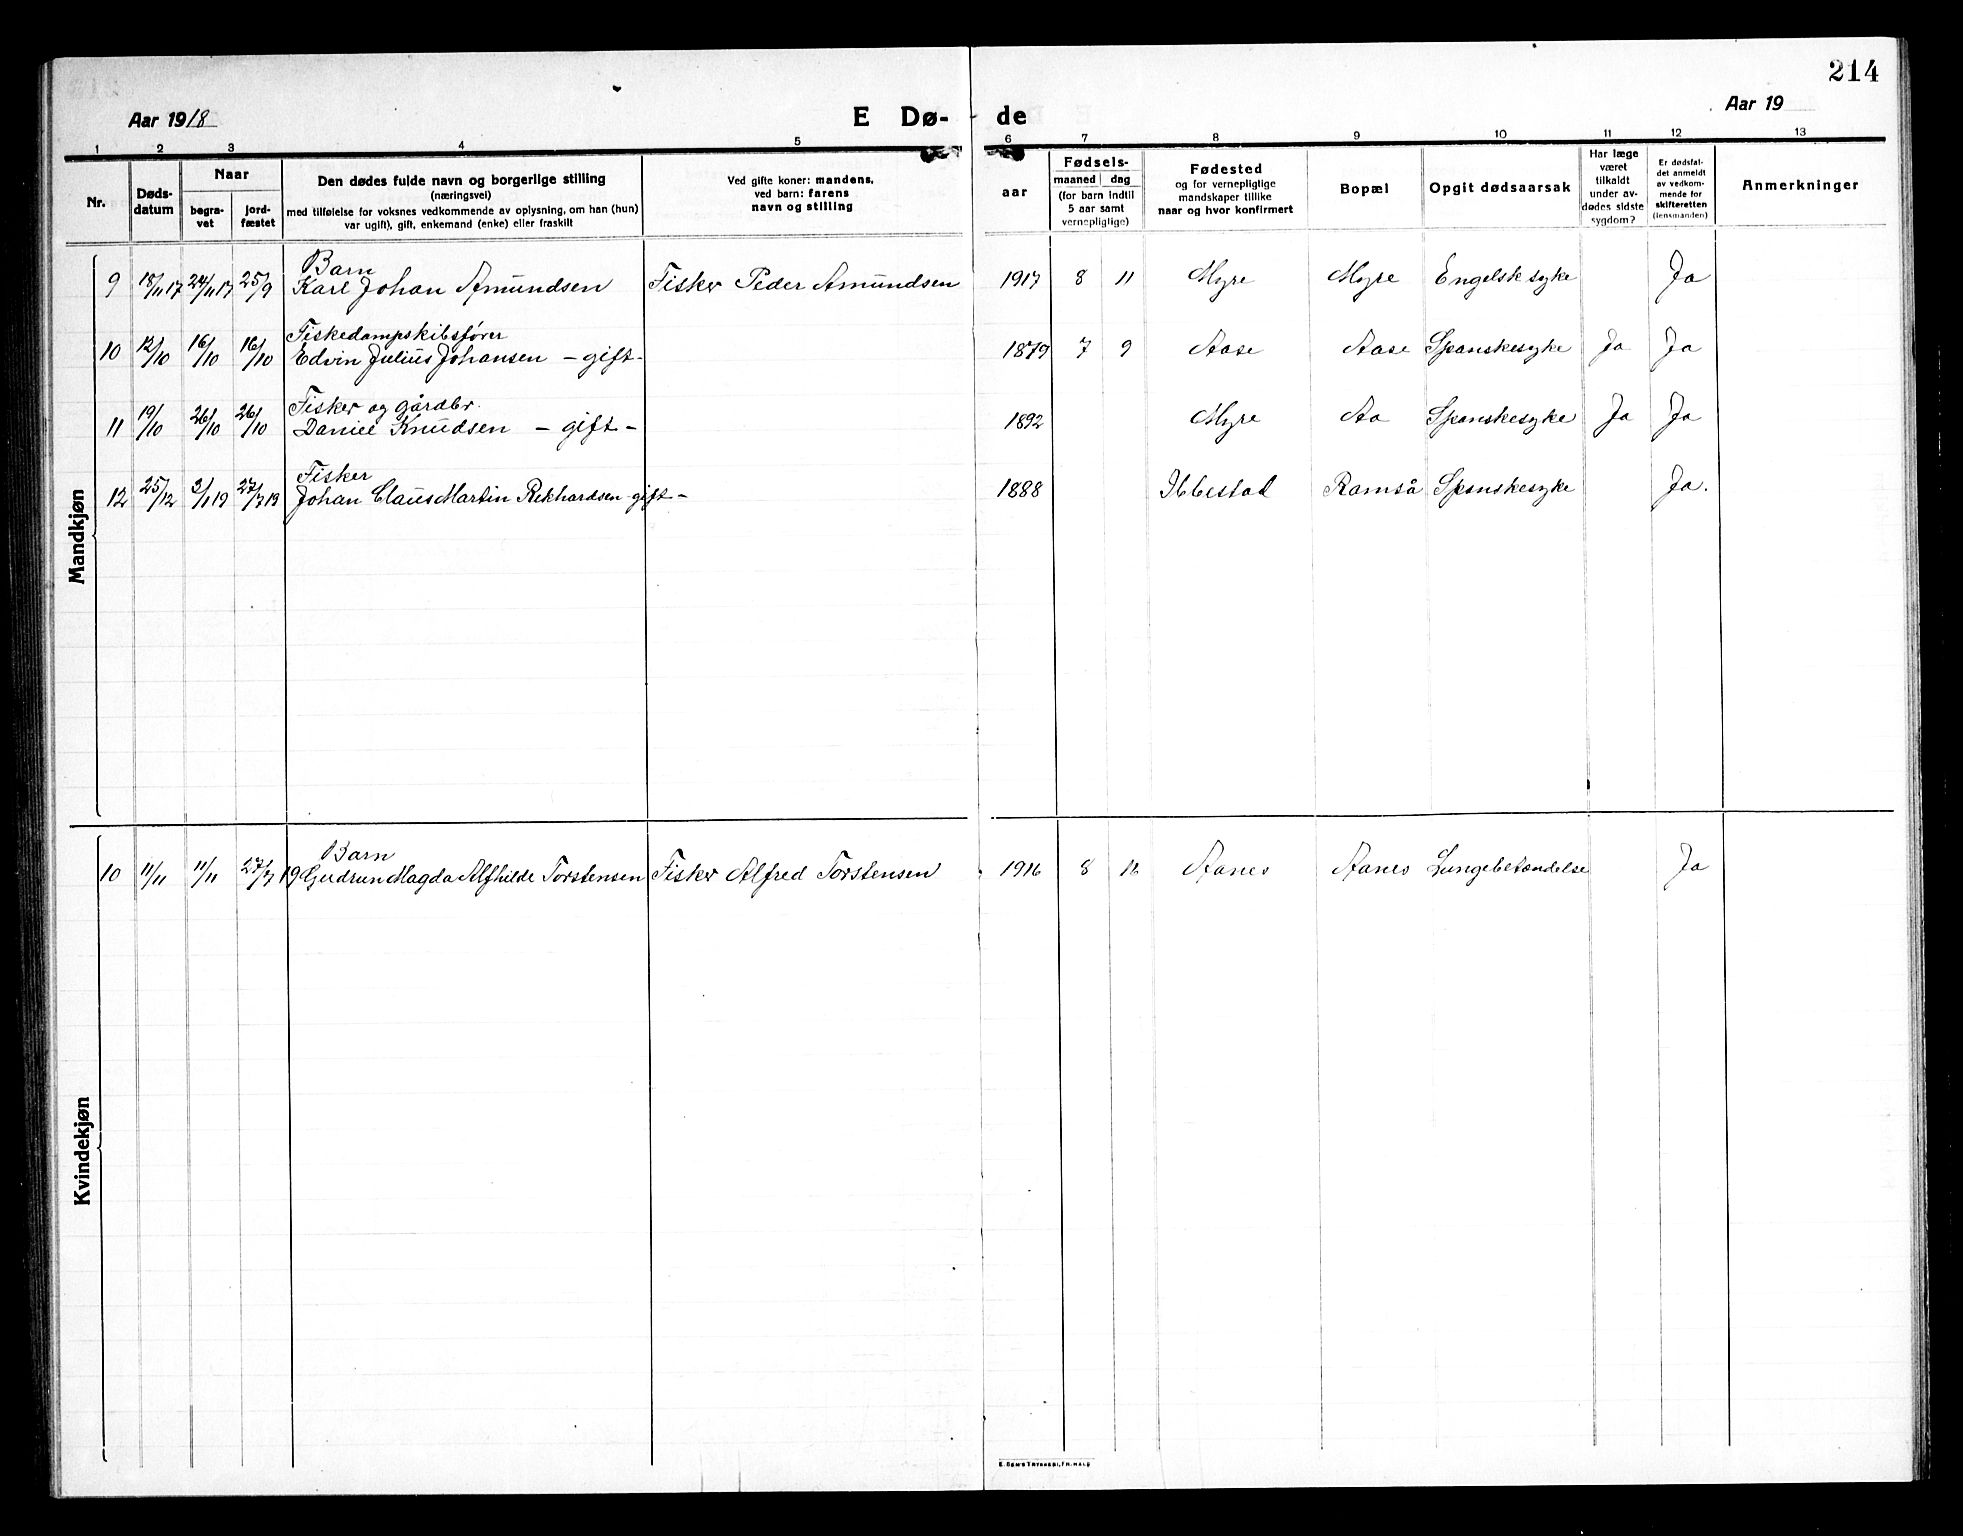 214
Aar 1918
E Dø-
de
Aar 19
1 2 3 4 5 6 7 8 9 10 11 12 13
Nr.
Døds-
datum
Naar
begra-
vet
jord-
fæstet
Den dødes fulde navn og borgerlige stilling
(næringsvei)
med tilføielse for voksnes vedkommende av oplysning, om han (hun)
var ugift), gift, enkemand (enke) eller fraskilt
Ved gifte koner: mandens,
ved barn: farens
navn og stilling
aar
Fødsels-
maaned dag
(for barn indtil
5 aar samt
vernepligtige)
Fødested
og for vernepligtige
mandskaper tillike
naar og hvor konfirmert
Bopæl
Opgit dødsaarsak
Har læge
været
tilkaldt
under av-
dødes sidste
sygdom?
Er dødsfal-
det anmeldt
av vedkom-
mende for
skifteretten
(lensmanden)
Anmerkninger
Mandkjøn
Barn
9 18/11 17 24/11 17 25/9 Karl Johan Amundsen Fisker Peder Amundsen 1917 8 11 Myre Myre Engelsk syke Ja
Fiskedampskibsfører
10 12/10 16/10 16/10 Edvin Julius Johansen – gift – 1879 7 9 Aase Aase Spanskesyke Ja Ja
Fisker og gårdbr.
11 19/10 26/10 26/10 Daniel Knudsen – gift – 1892 Myre Aa Spanskesyke Ja Ja
Fisker
12 25/12 3/1 19 27/7 19 Johan Claus Martin Rekhardsen - gift – 1888 Ibbestad Ramså Spanskesyke Ja.
Kvindekjøn
Barn
10 11/11 11/11 27/7 19 Gudrun Magda Alfhilde Torstensen Fisker Alfred Torstensen 1916 8 Aanes Aanes Lungebetændelse Ja